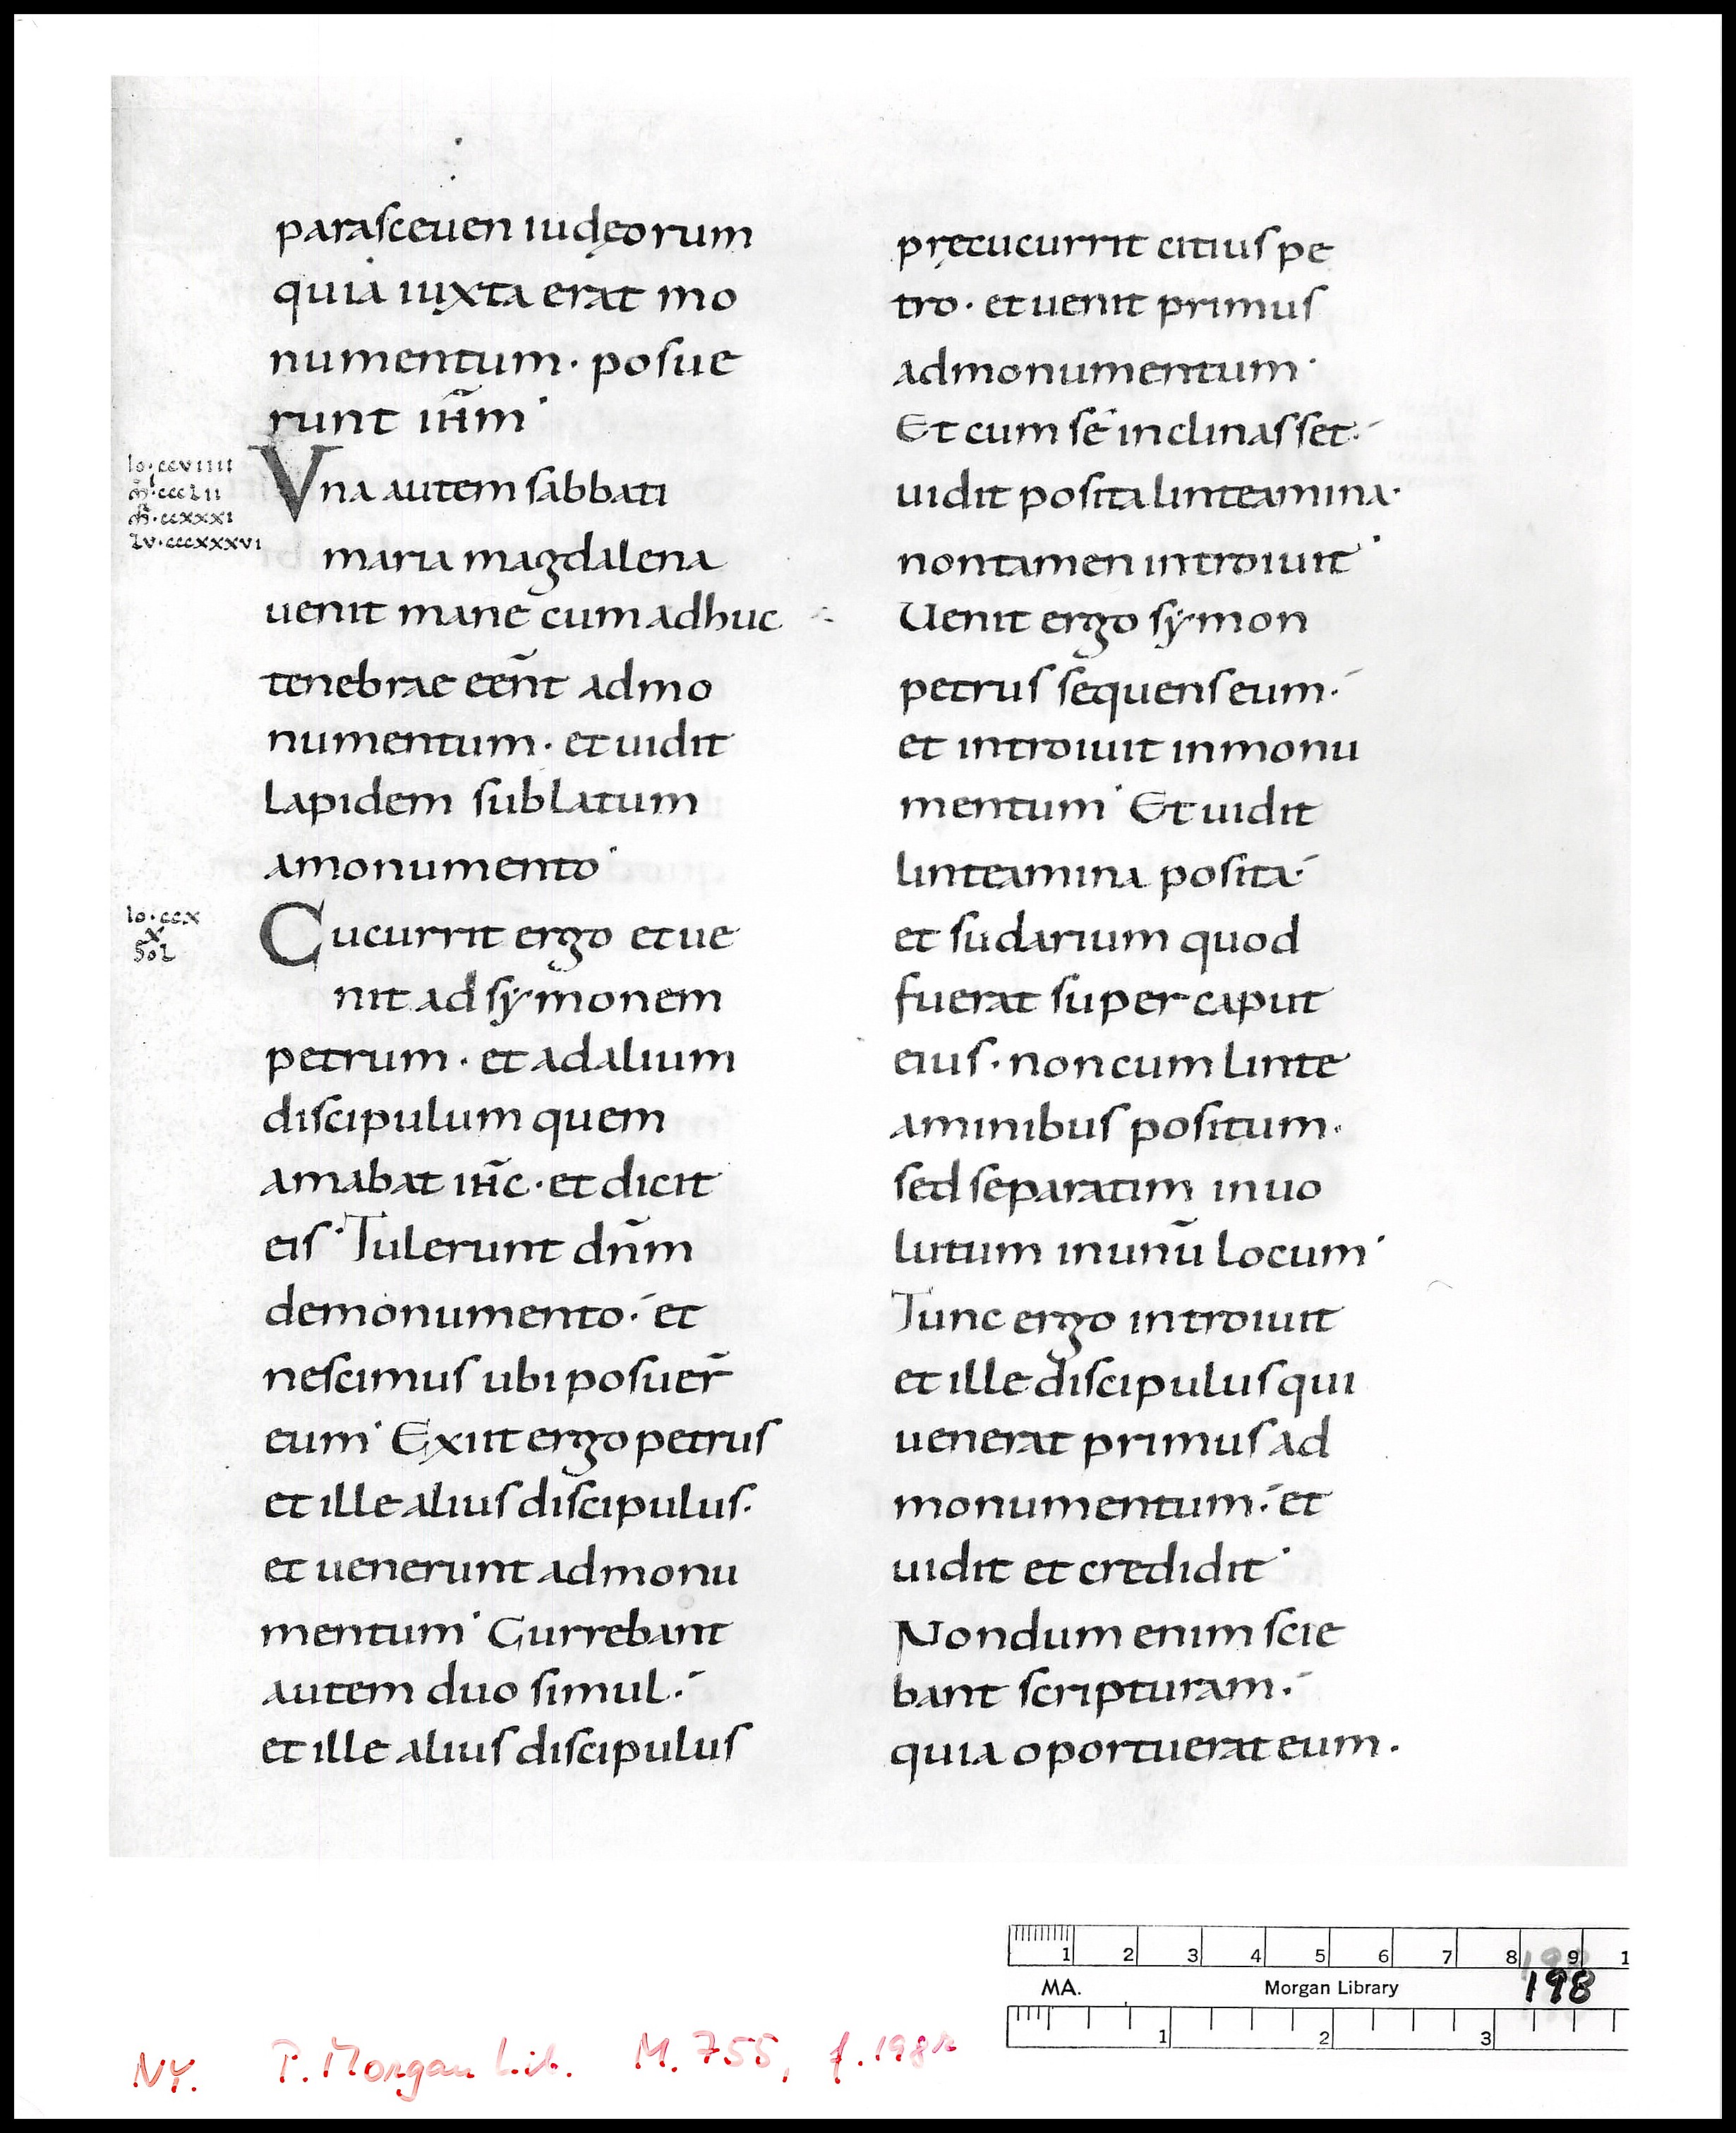 parasceuen iudęorum
quia iuxta erat mo
numentum · posue
runt ihm̃ ·
Io · ccviiii
m̃ · ccclii
m̃ · ccxxxi
Lv · cccxxxvi
Una autem sabbati
maria magdalena
uenit mane cum adhuc
tenebrae eeñt ad mo
numentum · et uidit
lapidem sublatum
a monumento ·
Io · ccx
x
sol
Cucurrit ergo et ue
nit ad sẏmonem
petrum · et ad alium
discipulum quem
amabat ihc̃ · et dicit
eis · Tulerunt dñm
de monumento · et
nescimus ubi posuer̃
eum · Exiit ergo petrus
et ille alius discipulus ·
et uenerunt ad monu
mentum · Currebant
autem duo simul ·
et ille alius discipulus
pręcucurrit citius pe
tro · et uenit primus
ad monumentum ·
Et cum se inclinasset ·
uidit posita linteamina ·
non tamen introiuit ·
Uenit ergo sẏmon
petrus sequens eum ·
et introiuit in monu
mentum · Et uidit
linteamina posita ·
et sudarium quod
fuerat super caput
eius · non cum linte
aminibus positum ·
sed separatim inuo
lutum in unū locum ·
Tunc ergo introiuit
et ille discipulus qui
uenerat primus ad
monumentum · et
uidit et credidit ·
Nondum enim scie
bant scripturam ·
quia oportuerat eum ·
1 2 3 4 5 6 7 8 9 1
MA. Morgan Library 198
1 2 3
NY. P. Morgan Lib. M. 755, f. 198r